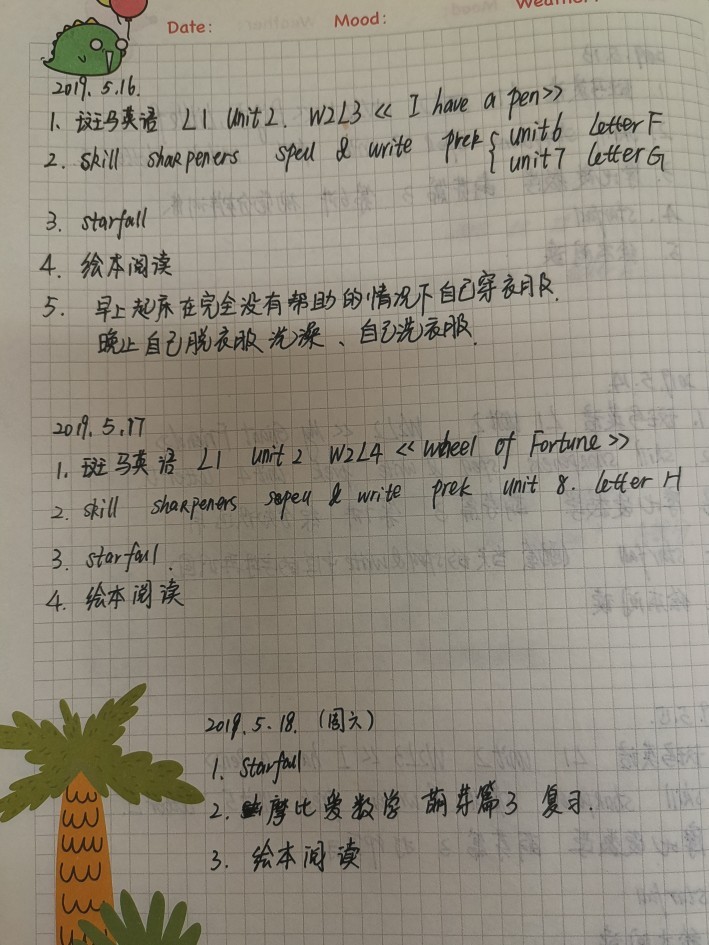 Date:
Mood:
Weather:
2019. 5.16.
1. 斑马英语 L1 Unit 2. W2L3 << I have a pen>>
2. skill sharpeners spell & write prek { unit 6 Letter F
unit 7 Letter G
3. starfall
4. 绘本阅读
5. 早上起床在完全没有帮助的情况下自己穿衣服.
晚上自己脱衣服洗澡、自己洗衣服.
2019. 5.17
1. 斑马英语 L1 Unit 2 W2L4 << Wheel of Fortune >>
2. skill sharpeners spell & write prek unit 8. Letter H
3. starfall.
4. 绘本阅读
2019. 5. 18. (周六)
1. Starfall
2. 摩比爱数学 萌芽篇3 复习.
3. 绘本阅读